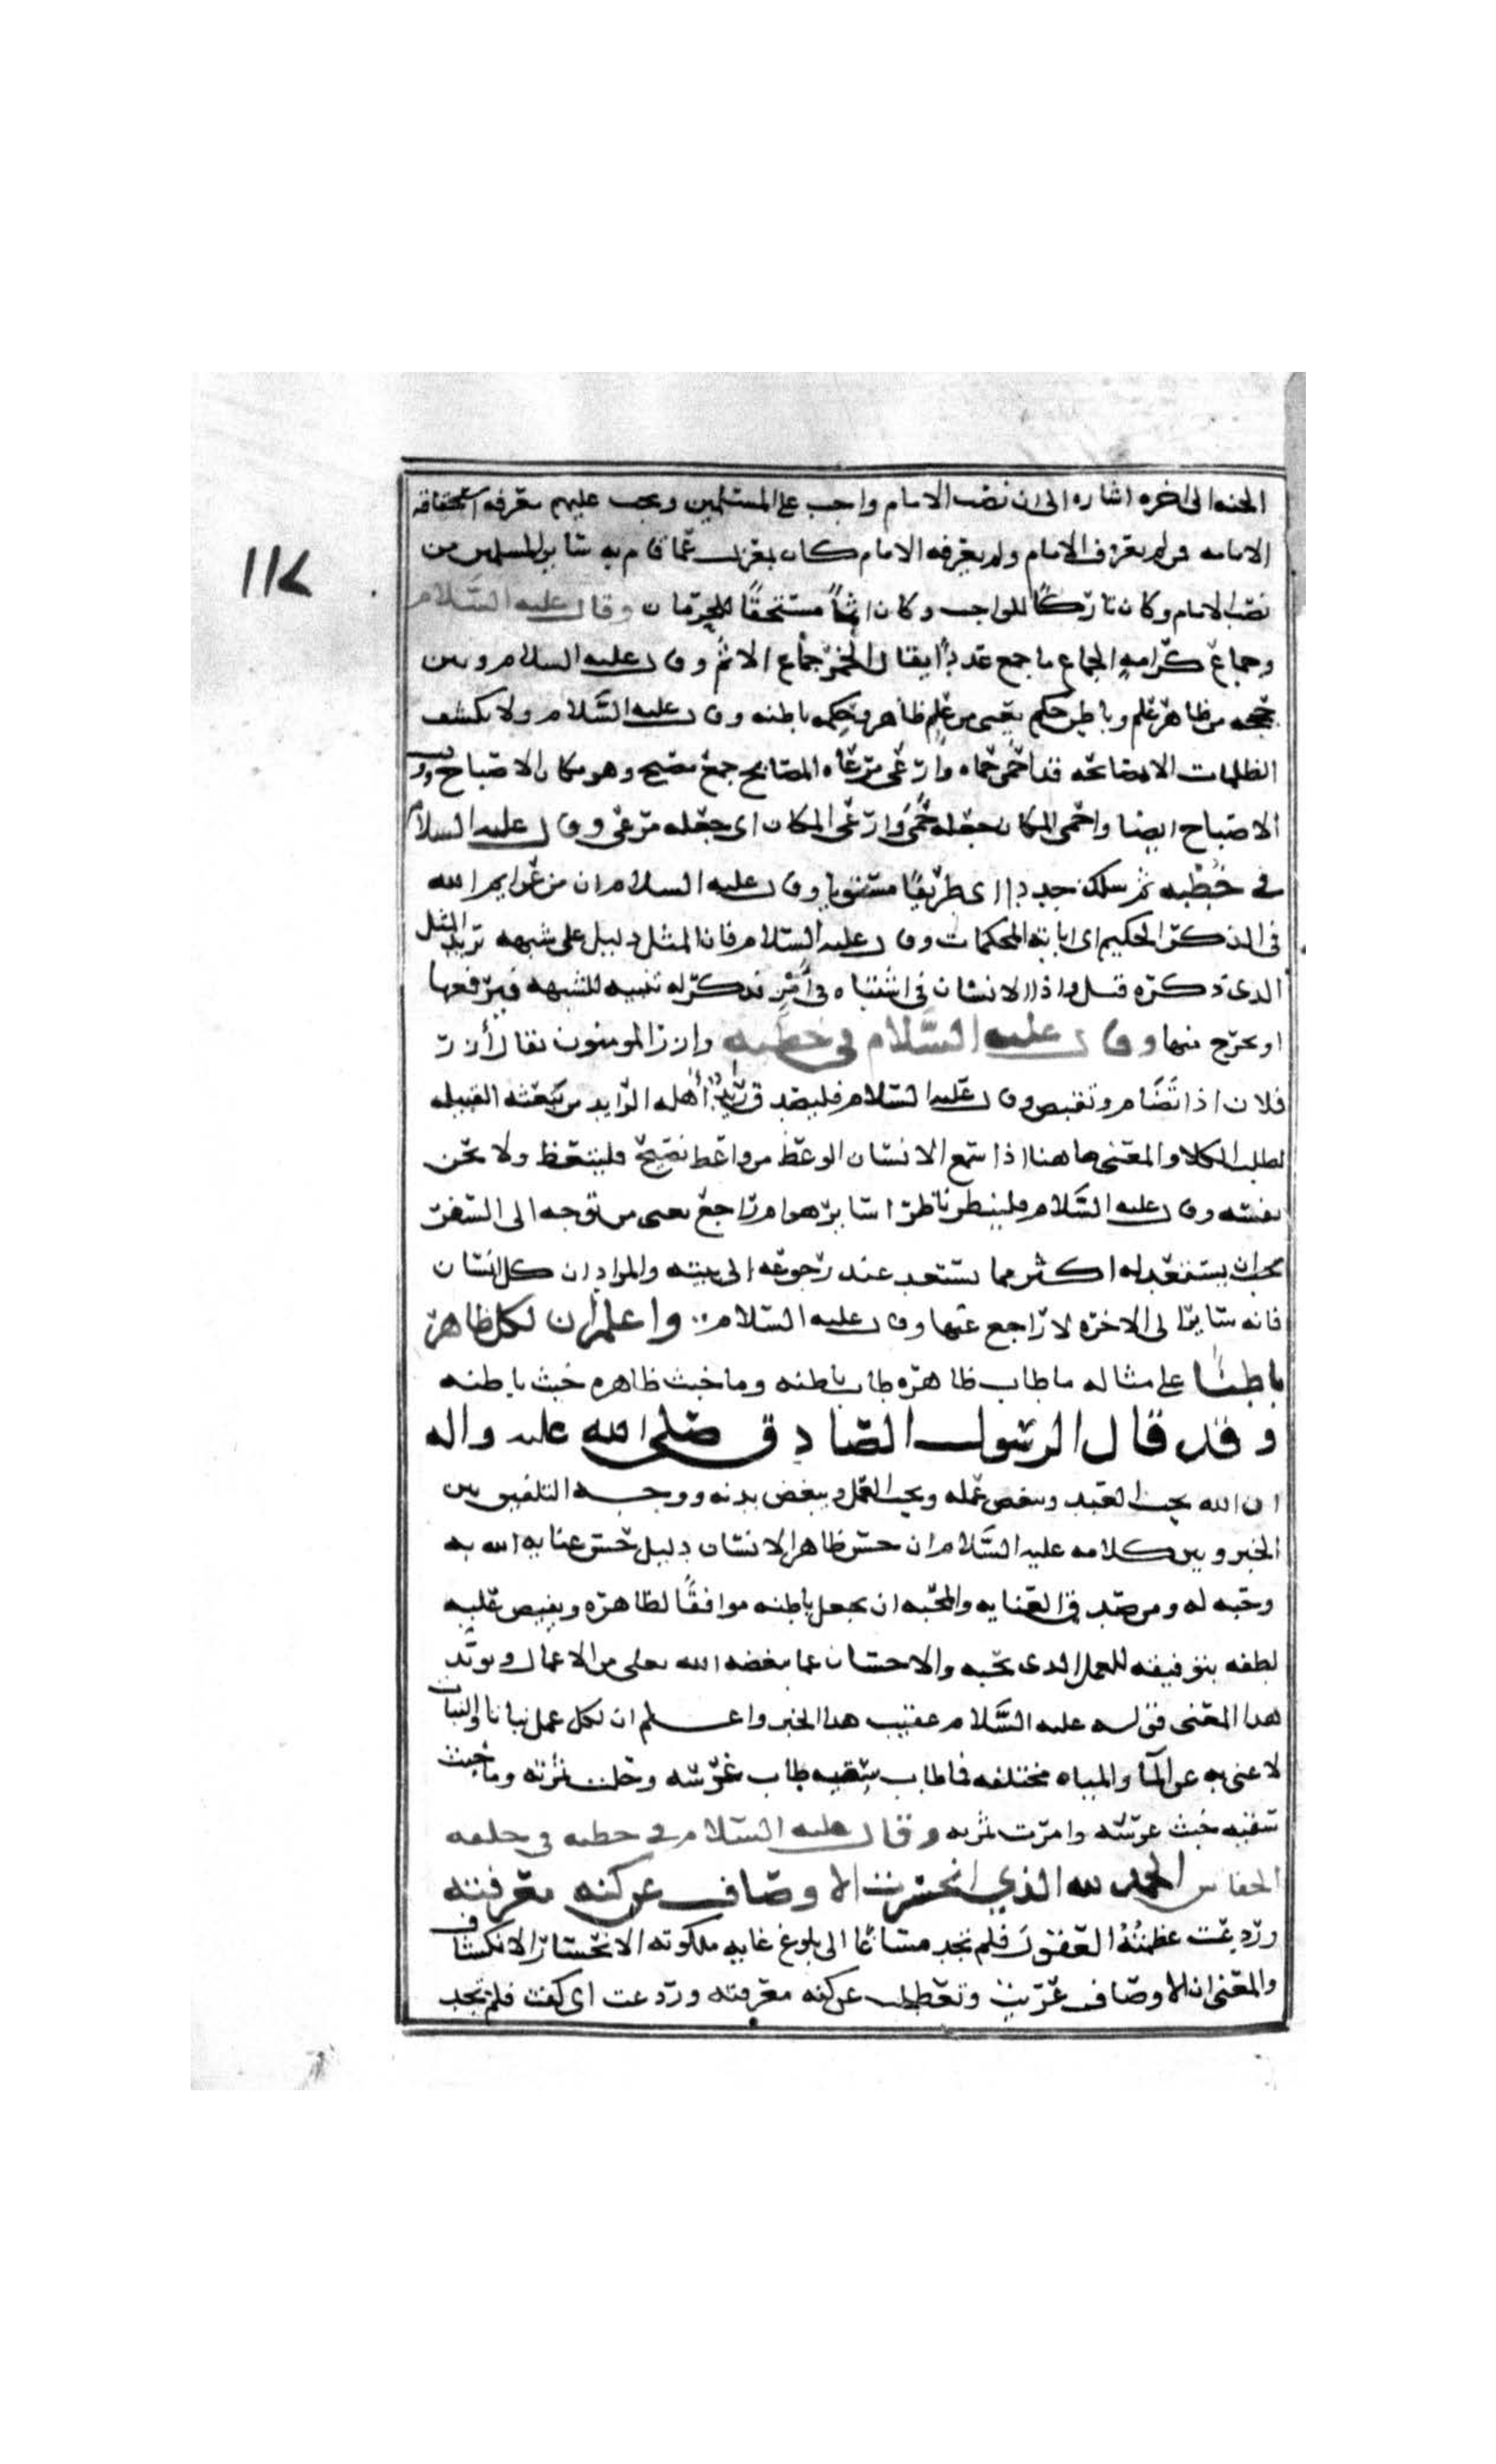 الجنه الى اخره اشاره الى ان نصب الامام واجب على المسلمين ويجب عليهم معرفه استحقاقه
الامامه فمن لم يعرف الامام ولم يعرفه الامام كان بمعزل عما قام به سائر المسلمين من
١١٤
نصب الامام وكان تاركًا للواجب وكان اثمًا مستحقًا للحرمان وقال عليه السلام
وجماع كرامه الجماع ما جمع عددًا يقال الخمر جماع الاثم وقال عليه السلام وبين
حججه من ظاهر علم وباطن حكم يعني من علم ظاهر وحكمه باطنه وقال عليه السلام ولا يكشف
الظلمات الا بمصابحه قد احمى حماه وارعى مرعاه المصابح جمع مصبح وهو مكان الاصباح ووقت
الاصباح ايضا واحمى المكان جعله حمى وارعى المكان اى جعله مرعى وقال عليه السلام
في خطبه ثم سلك جددا اى طريقًا مستويا وقال عليه السلام ان من عزايم الله
في الذكر الحكيم اى اياته المحكمات وقال عليه السلام فان المثل دليل على شبهه تريد المثل
الذى ذكره قبل واذا الانسان في اشتباه في أمر تذكر له تنبيه للشبهه فيرفعها
او يخرج منها وقال عليه السلام في خطبه وارز المومنون يقال أرز
فلان اذا تضام وتقبض وقال عليه السلام فليصدق رايدٌ أهله الرايد من تبعثه القبيله
لطلب الكلا والمعنى هاهنا اذا سمع الانسان الوعظ من واعظ نصيح فليتعظ ولا يخن
نفسه وقال عليه السلام فلينظر ناظر اساير هو ام راجع يعنى من توجه الى السفر
يجب ان يستعد له اكثر مما يستعد عند رجوعه الى بيته والمراد ان كل انسان
فانه ساير الى الاخره لا راجع عنها وقال عليه السلام واعلم أن لكل ظاهر
باطنًا على مثاله ما طاب ظاهره طاب باطنه وما خبث ظاهره خبث باطنه
وقد قال الرسول الصادق صلى الله عليه واله
ان الله يحب العبد ويبغض عمله ويحب العمل ويبغض بدنه ووجه التلفيق بين
الخبر وبين كلامه عليه السلام ان حسن ظاهر الانسان دليل حسن عنايه الله به
وحبه له ومن صد في العنايه والمحبه ان يجعل باطنه موافقًا لظاهره ويفيض عليه
لطفه بتوفيقه للعمل الذى يحبه والاحسان عما يبغضه الله تعلى من الاعمال ويويد
هذا المعنى قوله عليه السلام عقيب هذا الخبر واعلم ان لكل عمل نباتا والنبات
لا غنى به عن المآ والمياه مختلفه فما طاب سقيه طاب غرسه وحلت ثمرته وما خبث
سقيه خبث غرسه وامرت ثمرته وقال عليه السلام في خطبه في خلقه
الخفاش الحمد لله الذي انحسرت الاوصاف عن كنه معرفته
وردعت عظمتُهُ العقول فلم تجد مساغًا الى بلوغ غايه ملكوته الانحسار الانكشاف
والمعنى ان الاوصاف عريت وتعطلت عن كنه معرفته وردعت اى كفت فلم تجد